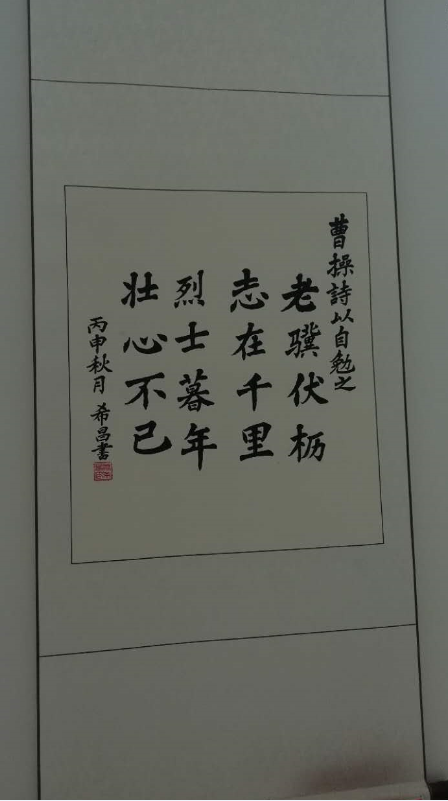 曹操詩以自勉之
老骥伏枥
志在千里
烈士暮年
壮心不已
丙申秋月 希昌書